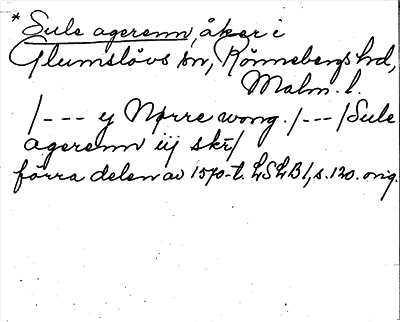 * Sule agerenn, åker i
Glumslövs sn, Rönnebergs hd,
Malm. l.
/--- y Nørre wong. /---/ Sule
agerenn iij skr/
förra delen av 1570-t. LSLB 1, s. 120. orig.